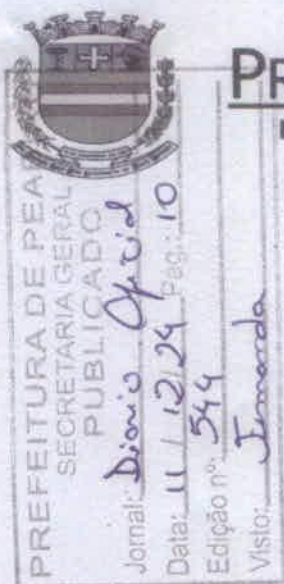 PR
PREFEITURA DE PEA
SECRETARIA GERAL
PUBLICADO
Jornal: Diário Oficial
Data: 11/12/24 Pag.: 10
Edição nº: 544
Visto: Fernanda